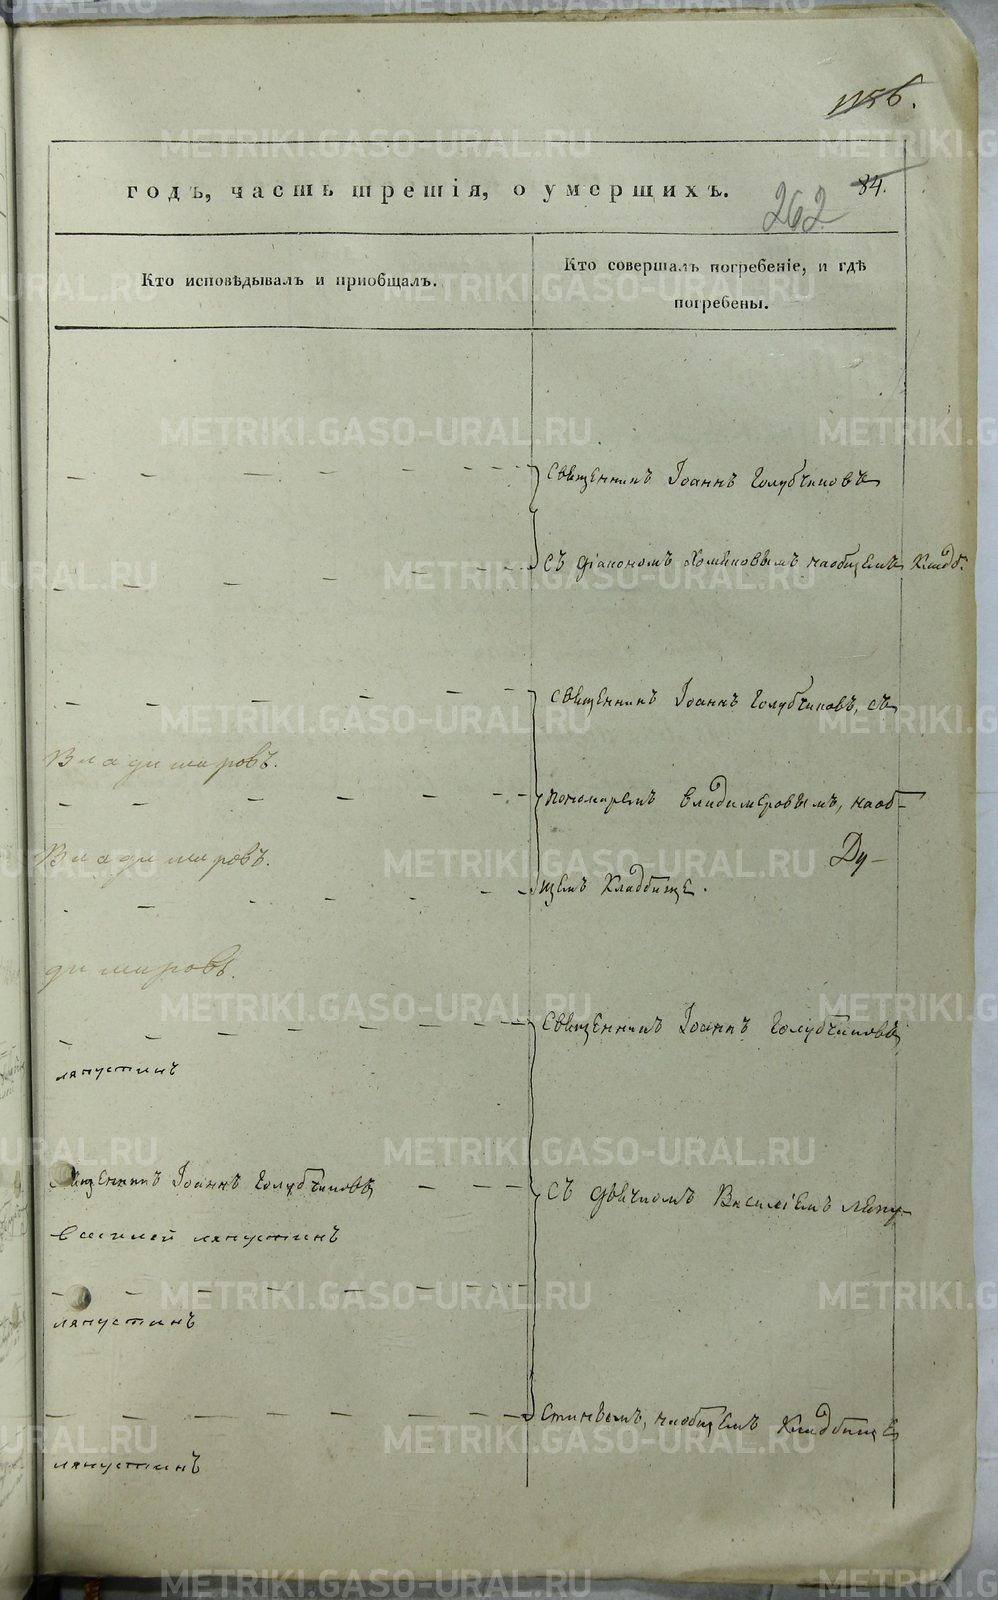 1156.
годъ, часть третія, о умерщихъ.
84.
262
Кто исповѣдывалъ и пріобщалъ.
Кто совершалъ погребеніе, и гдѣ
погребены.
Священникъ Іоаннъ Голубчиковъ
съ діакономъ Хомяковымъ на общемъ кладб.
Священникъ Іоаннъ Голубчиковъ, съ
Владимировъ.
пономаремъ Владимеровымъ, на об-
Ду-
Владимировъ.
щемъ кладбище.
димировъ.
Священникъ Іоаннъ Голубчиковъ
ляпустинъ
священникъ Іоаннъ Голубчиковъ
съ дьячкомъ Василіемъ Ляпу-
василей ляпустинъ
ляпустинъ
стинымъ, на общемъ кладбище
ляпустинъ
METRIKI.GASO-URAL.RU